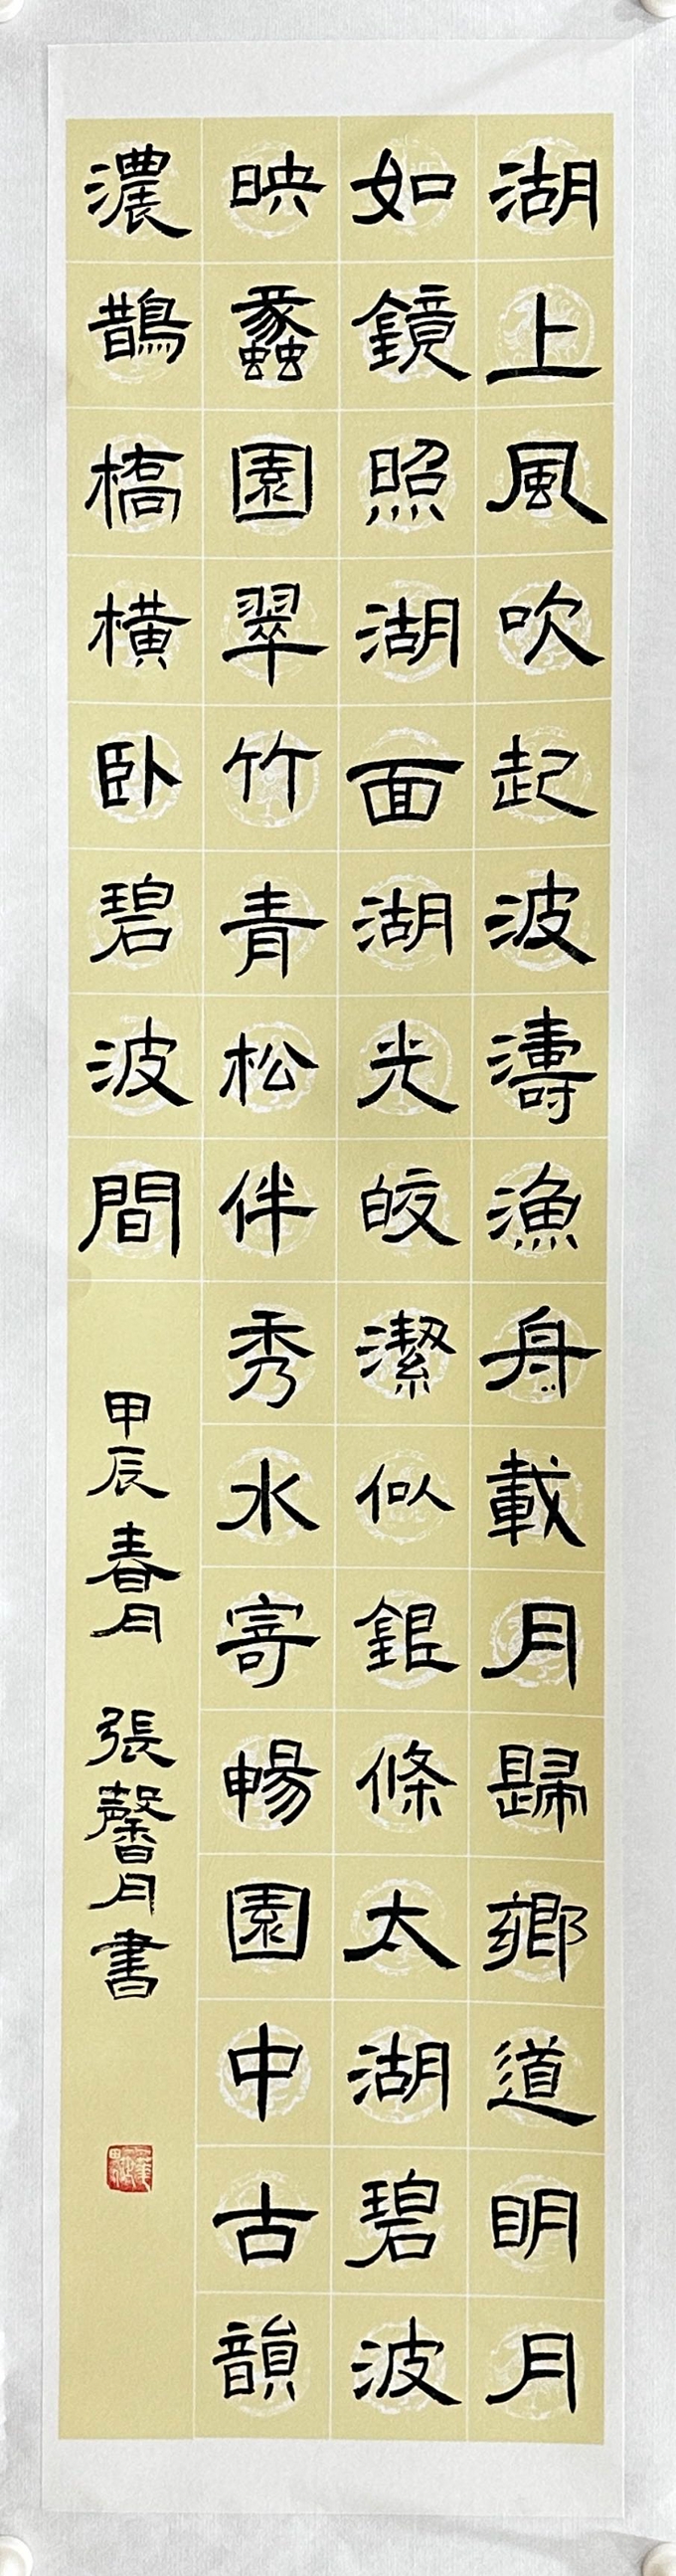 湖上風吹起波濤漁舟載月歸鄉道明月
如鏡照湖面湖光皎潔似銀條太湖碧波
映蠡園翠竹青松伴秀水寄暢園中古韻
濃鵲橋橫卧碧波間
甲辰春月 張馨月書